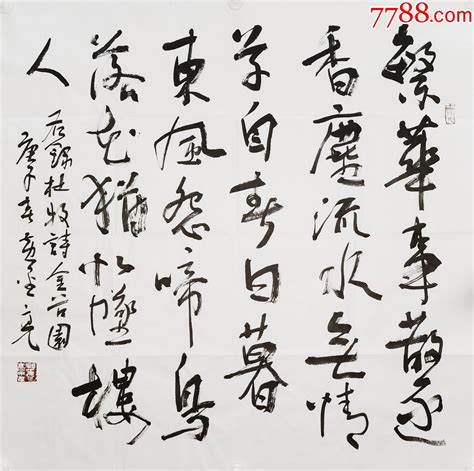 7788.com
中国收藏热线
繁華事散逐
香塵流水無情
草自春日暮
東風怨啼鳥
落花猶似墜樓
人
右錄杜牧詩金谷園
庚子春